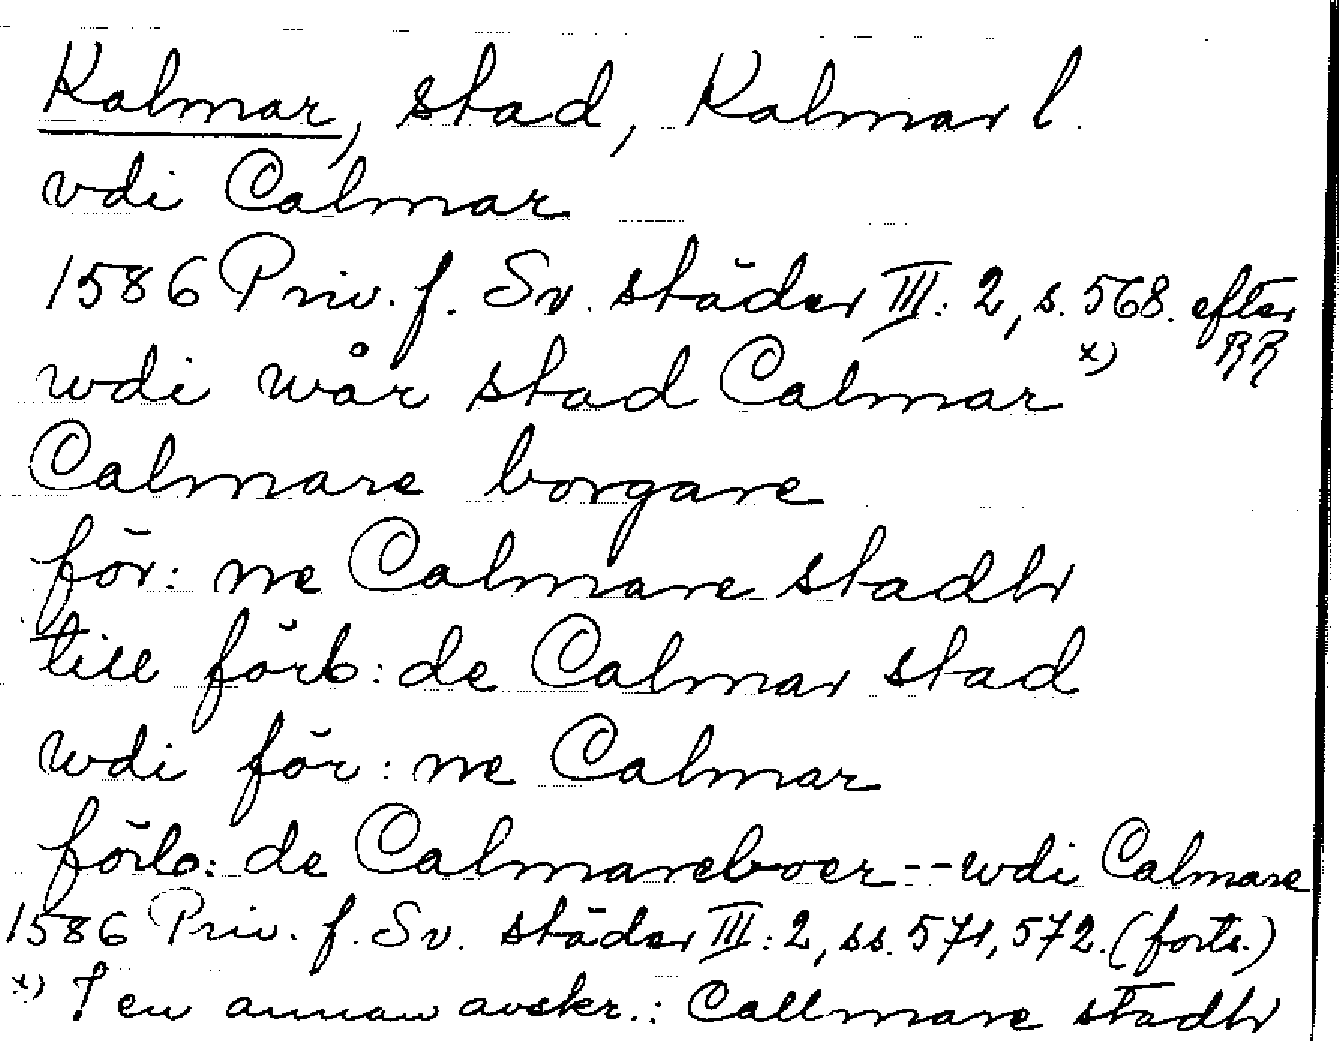 Kalmar, stad, Kalmar l.
vdi Calmar
1586 Priv. f. Sv. städer III: 2, s. 568. efter RR
wdi wår stad Calmar x)
Calmare borgare
för: ne Calmare stadh
till förb: de Calmar stad
wdi för: ne Calmar
förb: de Calmareboer -- wdi Calmare
1586 Priv. f. Sv. städer III: 2, ss. 571, 572. (forts.)
x) I en annan avskr.: Callmare stadh